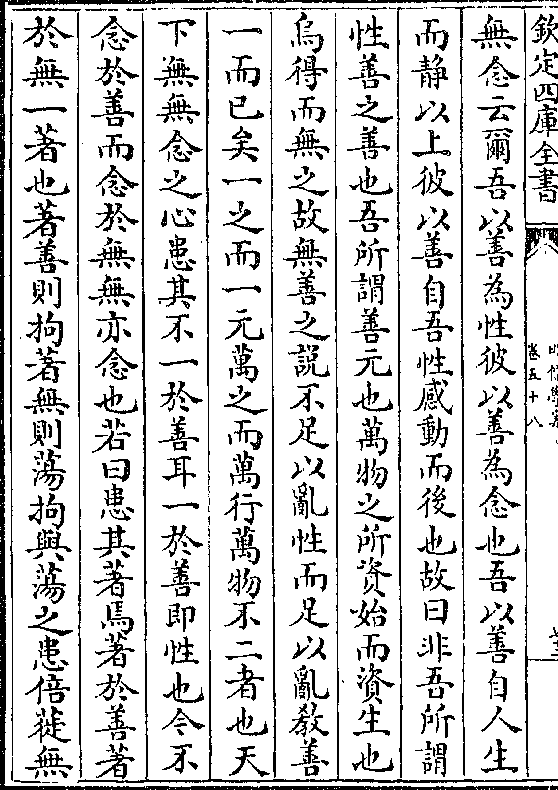 欽定四庫全書
卷五十八
無念云爾吾以善為性彼以善為念也吾以善自人生
而静以上彼以善自吾性感動而後也故曰非吾所謂
性善之善也吾所謂善元也萬物之所資始而資生也
烏得而無之故無善之説不足以亂性而足以亂教善
一而已矣一之而一元萬之而萬行萬物不二者也天
下無無念之心患其不一於善耳一於善即性也今不
念於善而念於無無亦念也若曰患其著焉著於善著
於無一著也著善則拘著無則蕩拘與蕩之患倍蓰無